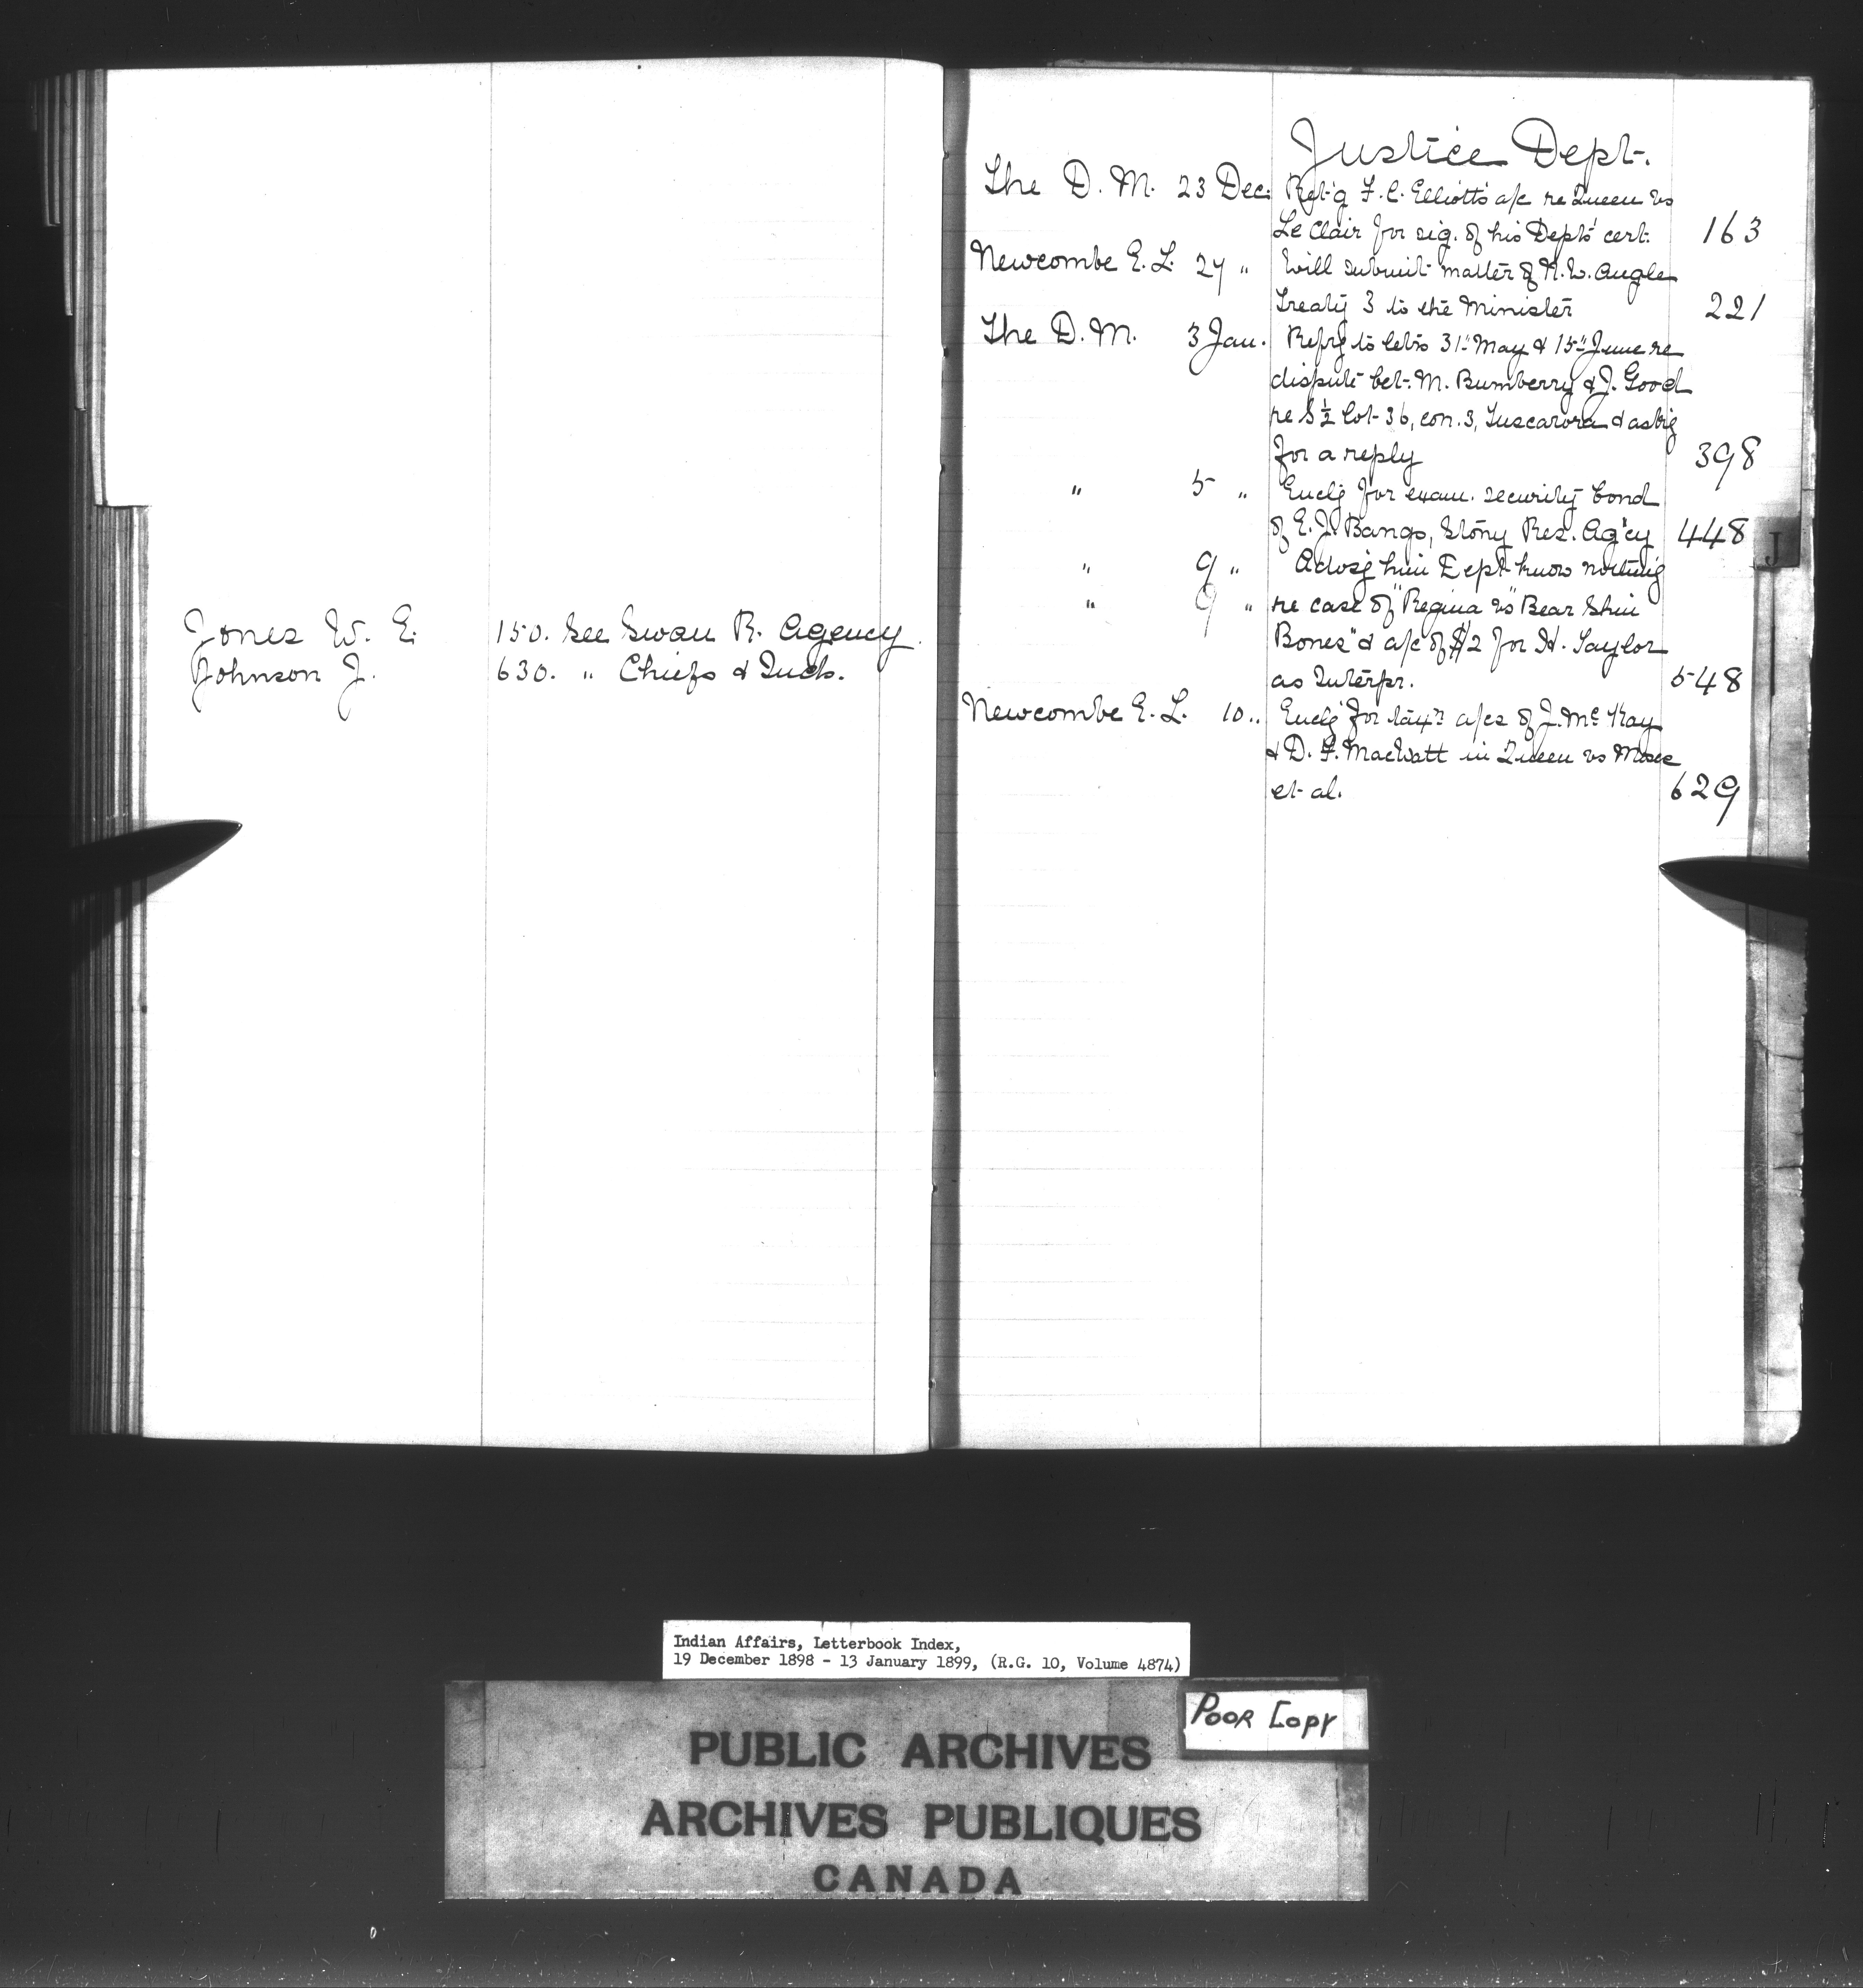 Jones W. E. 150. See Swan R. Agency.
Johnson J. 630. " Chiefs & Inds.
Justice Dept.
The D. M. 23 Dec. Ret'g F. C. Elliott's a/c re Queen vs
Le Clair for sig. of his Dept's cert. 163
Newcombe E. L. 27 " Will submit matter of N. W. Angle
Treaty 3 to the Minister 221
The D. M. 3 Jan. Refrg to let's 31st May & 15th June re
dispute bet. M. Bumberry & J. Good
re S ½ Lot 36, con. 3, Tuscarora & askg
for a reply 398
" 5 " Enclg for exam. security bond
of E. J. Bangs, Stony Res. Ag'cy 448
" 9 " Advsg him Dept know nothing
" 9 " re case of "Regina vs Bear Shin
Bones" & a/c of $2 for H. Taylor
as Interpr. 548
Newcombe E. L. 10 " Enclg for tax'n a/cs of J. McKay
& D. F. MacWatt in Queen vs Moses
et al. 629
J
Indian Affairs, Letterbook Index,
19 December 1898 - 13 January 1899, (R.G. 10, Volume 4874)
Poor Copy
PUBLIC ARCHIVES
ARCHIVES PUBLIQUES
CANADA